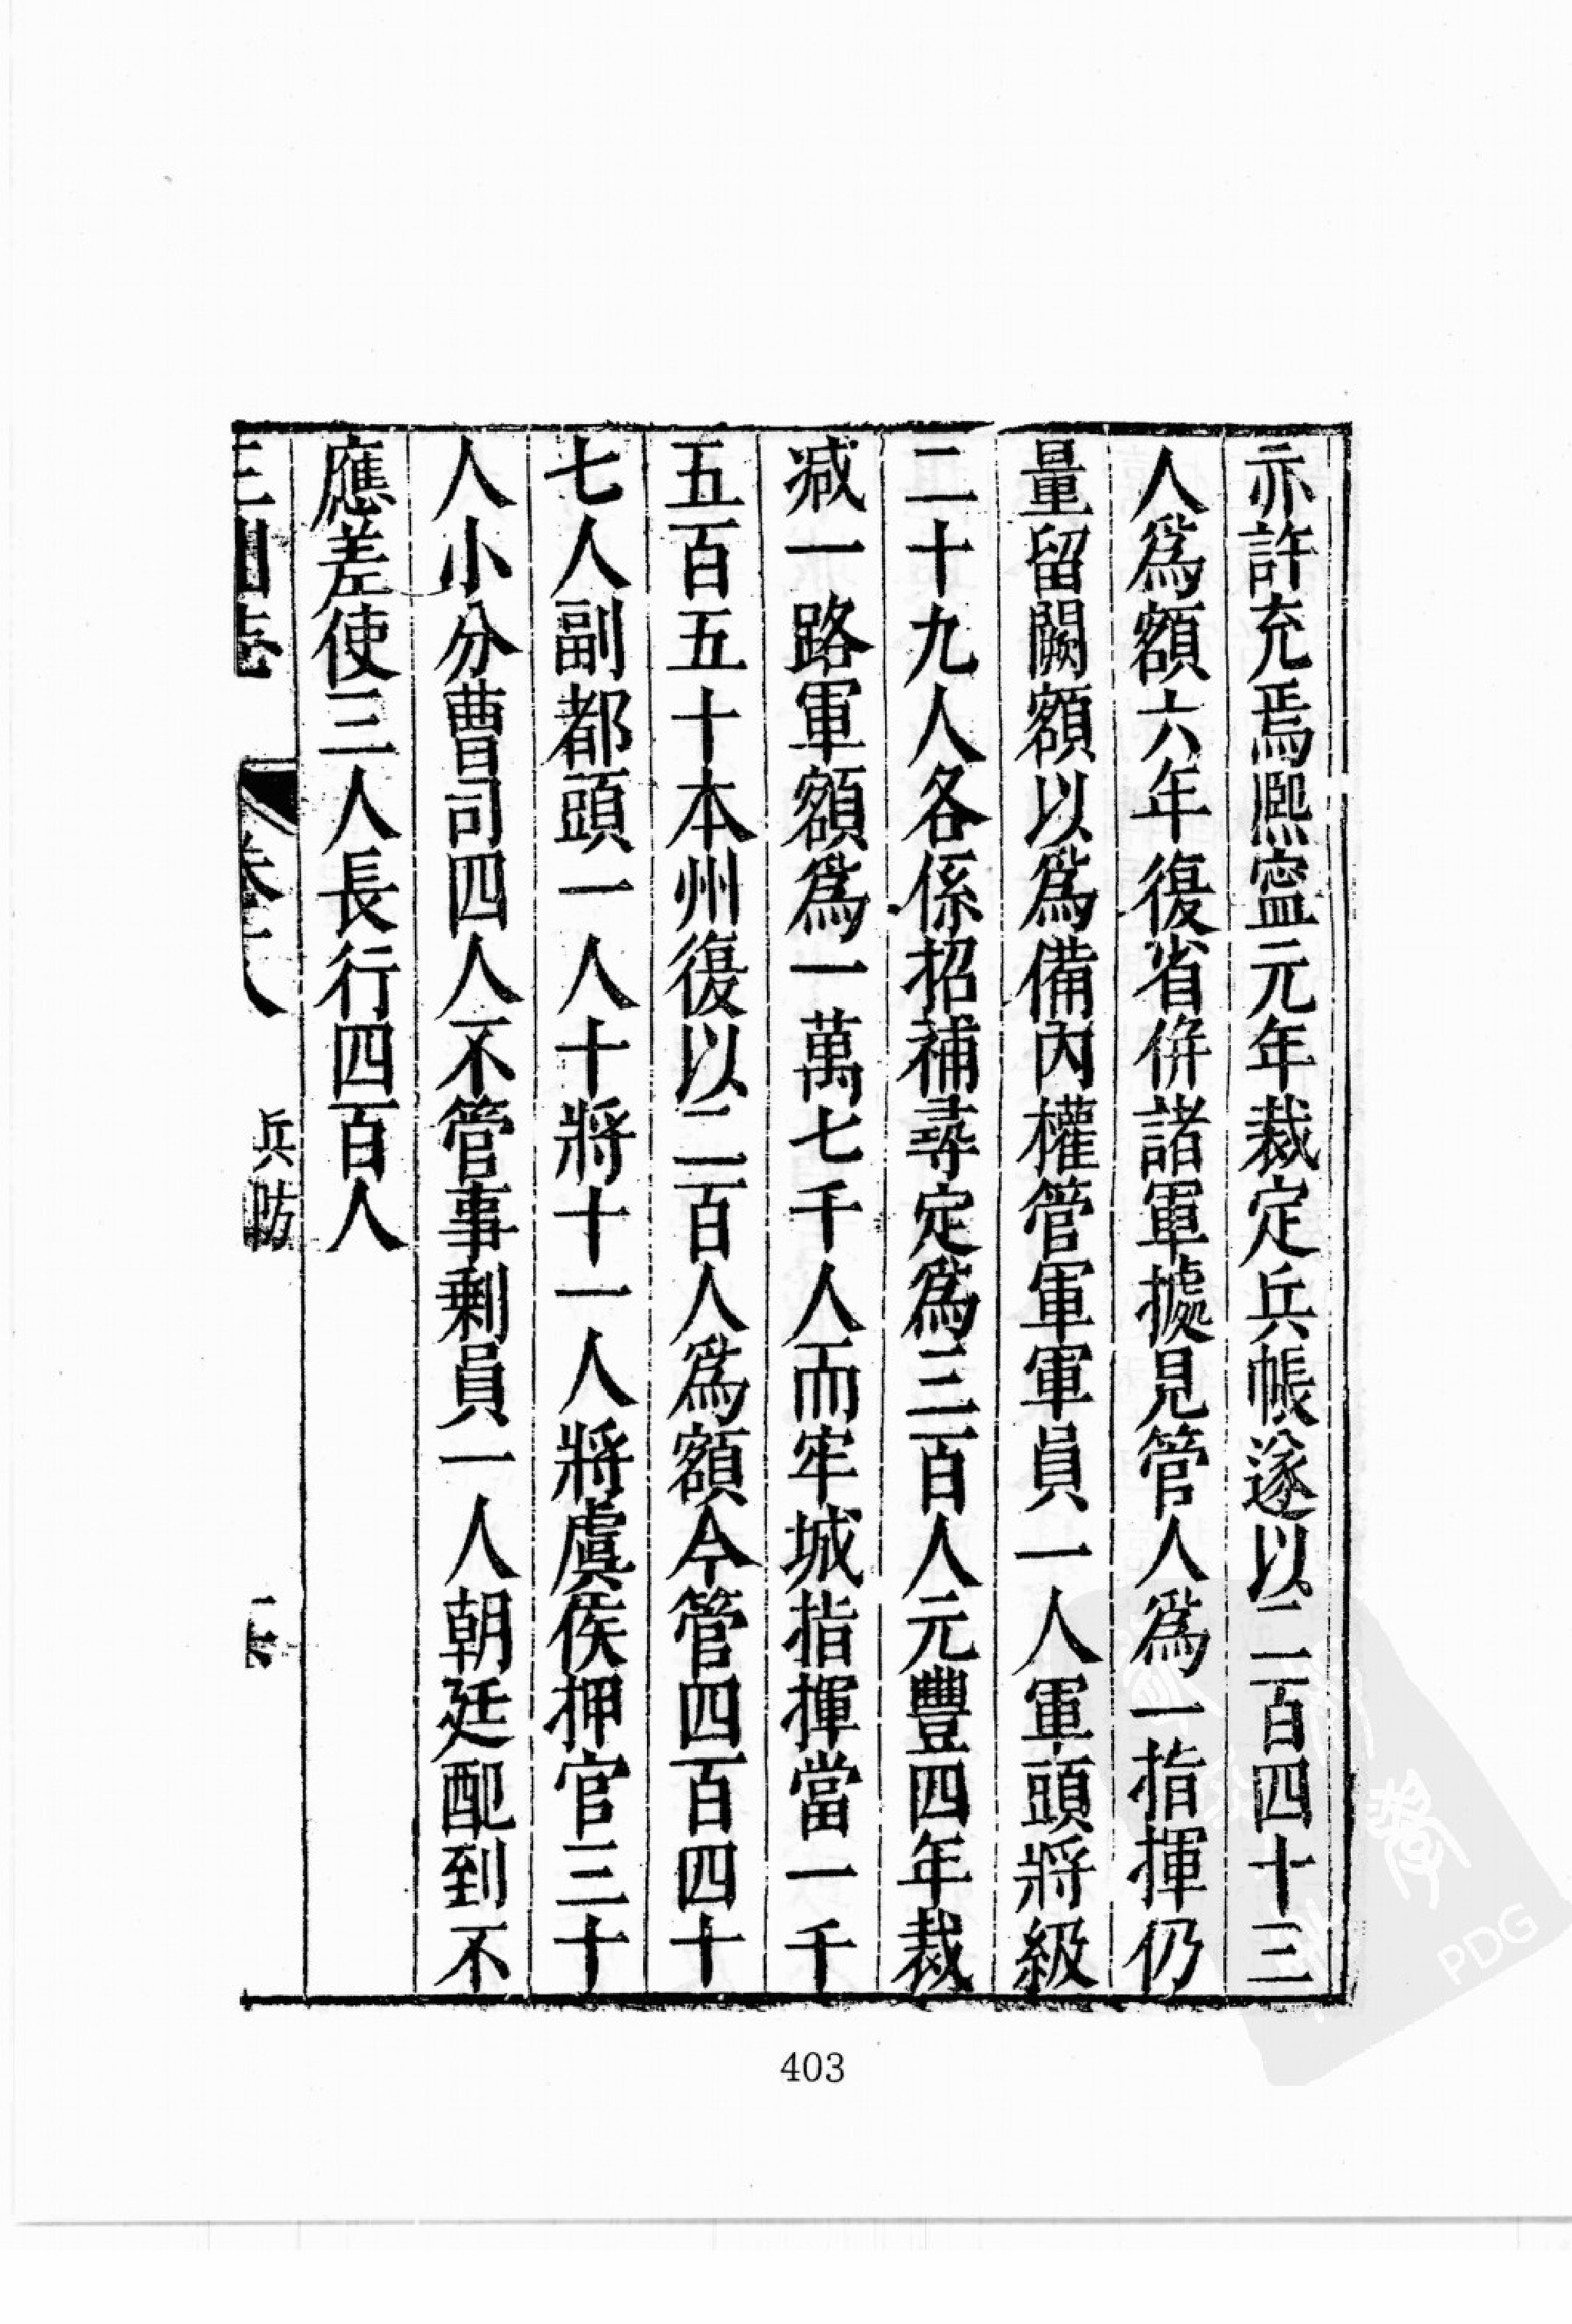 亦許充焉熙寧元年裁定兵帳遂以二百四十三
人爲額六年復省併諸軍據見管人爲一指揮仍
量留闕額以爲備內權管軍軍員一人軍頭將級
二十九人各係招補尋定爲三百人元豐四年裁
减一路軍額爲一萬七千人而牢城指揮當一千
五百五十本州復以二百人爲額今管四百四十
七人副都頭一人十將十一人將虞侯押官三十
人小分曹司四人不管事剩員一人朝廷配到不
應差使三人長行四百人
三山志 卷十八 兵防
403
PDG